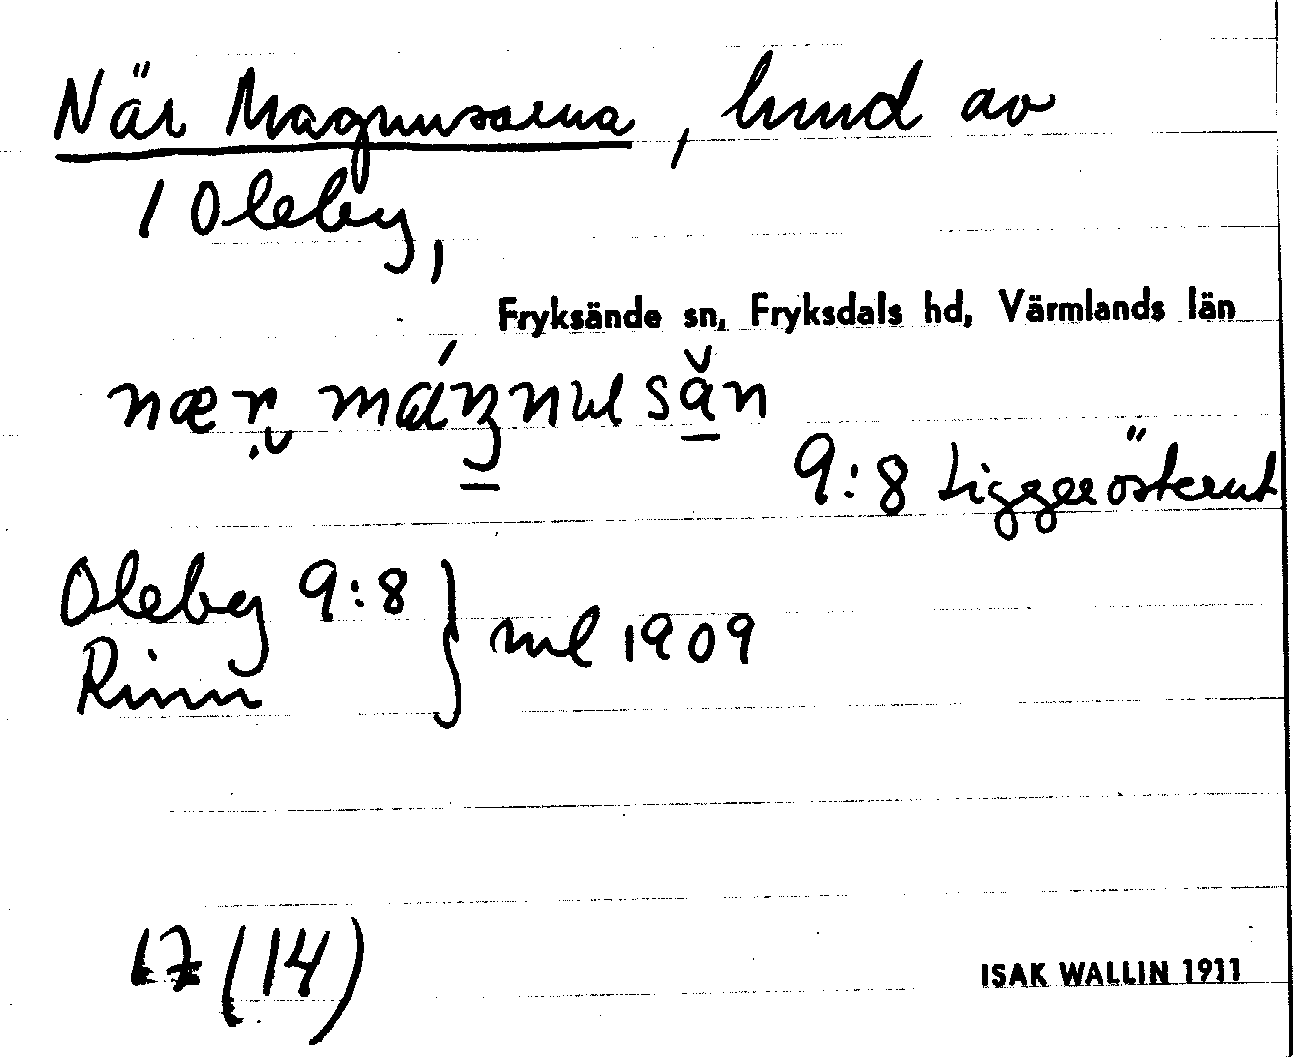 När Magnusarna, hmd av
1 Oleby,
Fryksände sn, Fryksdals hd, Värmlands län
nær
9:8 Ligger österut
Oleby 9:8
Rinn } ml 1909
17 (14)
ISAK WALLIN 1911